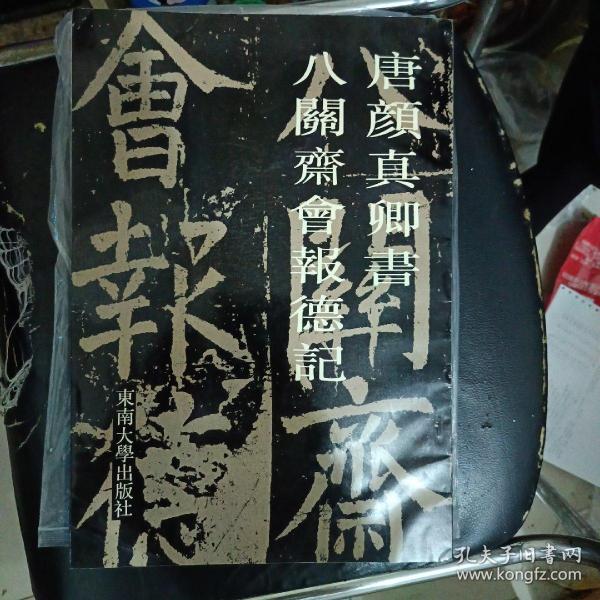 唐顔真卿書
八關齋會報德記
八關齋
會報德
東南大學出版社
孔夫子旧书网
www.kongfz.com